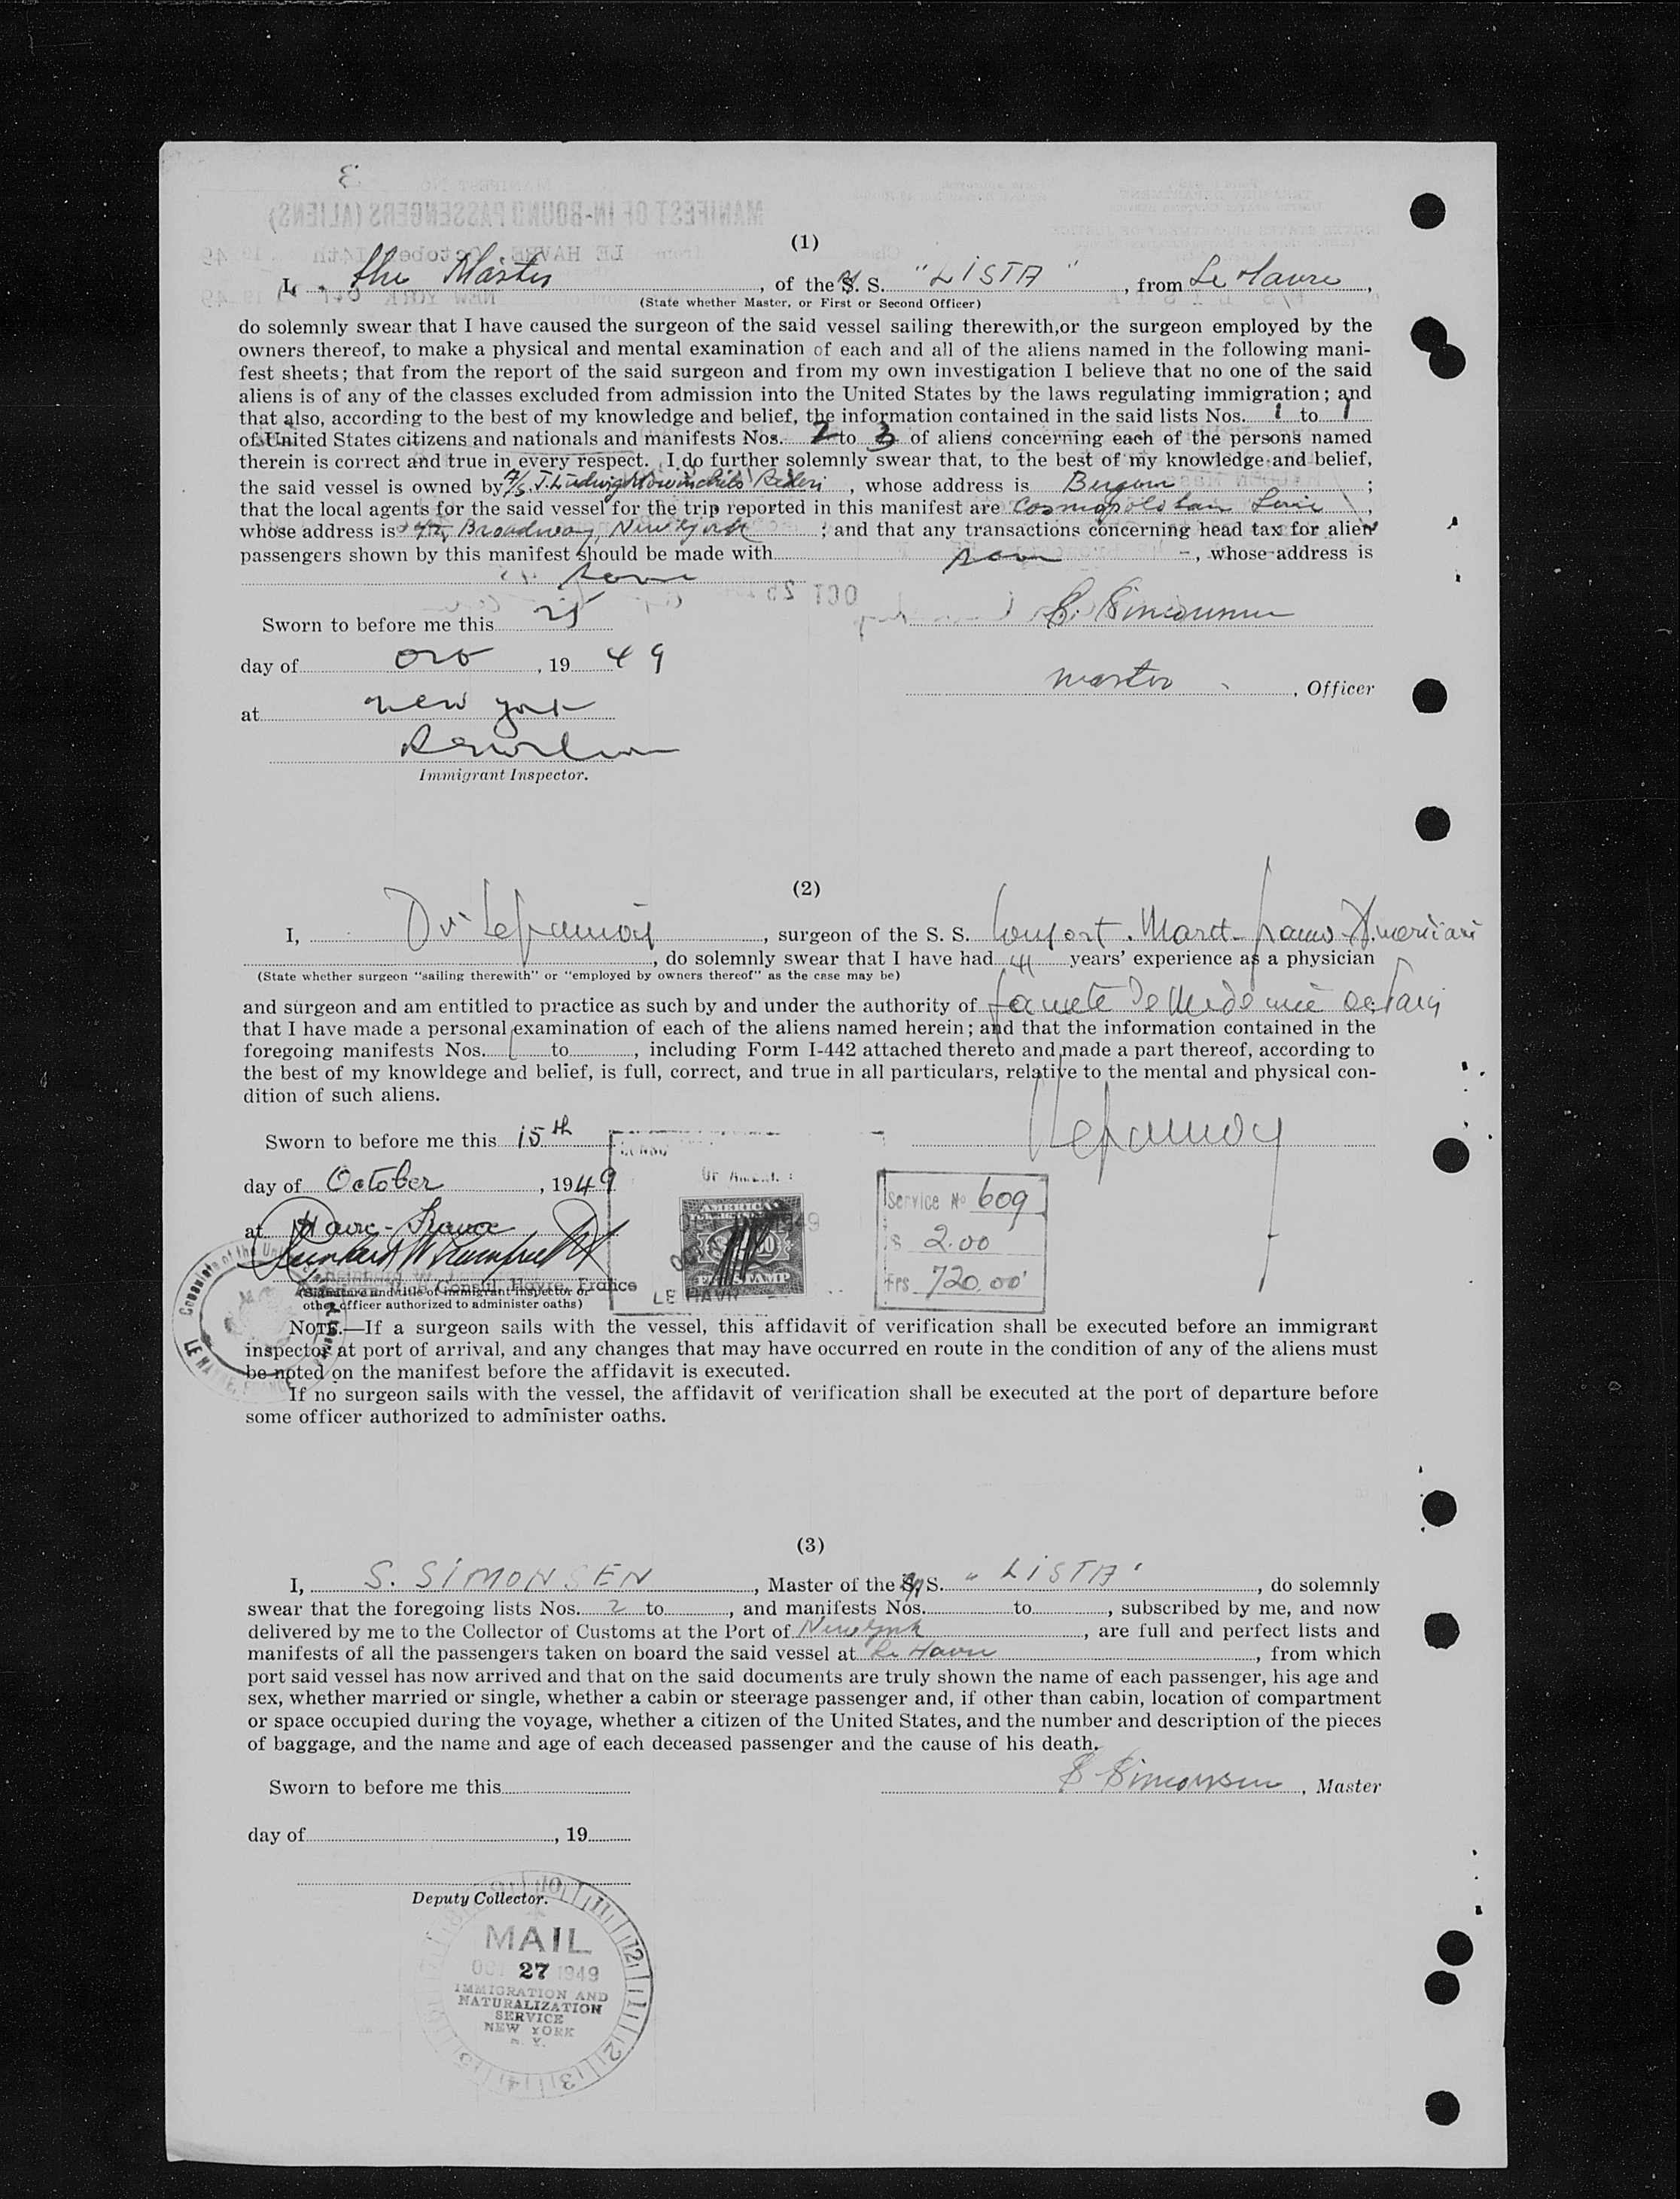 (1)
I, the Master, of the M/S. S. "LISTA", from Le Havre,
(State whether Master, or First or Second Officer)
do solemnly swear that I have caused the surgeon of the said vessel sailing therewith,or the surgeon employed by the
owners thereof, to make a physical and mental examination of each and all of the aliens named in the following mani-
fest sheets; that from the report of the said surgeon and from my own investigation I believe that no one of the said
aliens is of any of the classes excluded from admission into the United States by the laws regulating immigration; and
that also, according to the best of my knowledge and belief, the information contained in the said lists Nos. 1 to 1
of United States citizens and nationals and manifests Nos. 2 to 3 of aliens concerning each of the persons named
therein is correct and true in every respect. I do further solemnly swear that, to the best of my knowledge and belief,
the said vessel is owned by A/S J. Ludwig Mowinckels Rederi, whose address is Bergen;
that the local agents for the said vessel for the trip reported in this manifest are Cosmopolitan Line,
whose address is 42, Broadway, New York; and that any transactions concerning head tax for alien
passengers shown by this manifest should be made with same, whose address is
same
Sworn to before me this 25
S. Simonsen
day of Oct, 19 49
Master, Officer
at New York
Immigrant Inspector.
(2)
I, Dr Lefrancois, surgeon of the S. S.
, do solemnly swear that I have had years' experience as a physician
(State whether surgeon "sailing therewith" or "employed by owners thereof" as the case may be)
and surgeon and am entitled to practice as such by and under the authority of faculté de Medecine de Paris
that I have made a personal examination of each of the aliens named herein; and that the information contained in the
foregoing manifests Nos. to, including Form I-442 attached thereto and made a part thereof, according to
the best of my knowldege and belief, is full, correct, and true in all particulars, relative to the mental and physical con-
dition of such aliens.
Sworn to before me this 15th
Lefrancois
day of October, 1949
at Havre - France
Consul, Havre, France
(Signature and title of immigrant inspector or
other officer authorized to administer oaths)
AMERICAN
FEE STAMP
LE HAVRE
Service No 609
$ 2.00
Frs 720.00
NOTE.—If a surgeon sails with the vessel, this affidavit of verification shall be executed before an immigrant
inspector at port of arrival, and any changes that may have occurred en route in the condition of any of the aliens must
be noted on the manifest before the affidavit is executed.
If no surgeon sails with the vessel, the affidavit of verification shall be executed at the port of departure before
some officer authorized to administer oaths.
(3)
I, S. SIMONSEN, Master of the M/S. "LISTA", do solemnly
swear that the foregoing lists Nos. 2 to, and manifests Nos. to, subscribed by me, and now
delivered by me to the Collector of Customs at the Port of New York, are full and perfect lists and
manifests of all the passengers taken on board the said vessel at Le Havre, from which
port said vessel has now arrived and that on the said documents are truly shown the name of each passenger, his age and
sex, whether married or single, whether a cabin or steerage passenger and, if other than cabin, location of compartment
or space occupied during the voyage, whether a citizen of the United States, and the number and description of the pieces
of baggage, and the name and age of each deceased passenger and the cause of his death.
Sworn to before me this
S Simonsen, Master
day of, 19
Deputy Collector.
MAIL
OCT 27 1949
IMMIGRATION AND
NATURALIZATION
SERVICE
NEW YORK
N. Y.